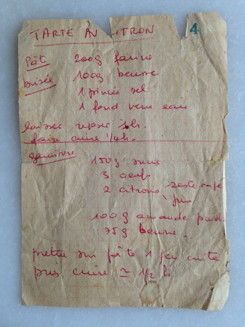 TARTE AU CITRON
4
Pât 200g farine
brisée 100g beurre
1 pincée sel
1 fond verre eau
laisser reposer 1/2h.
faire cuire 1/4h.
garniture
150g sucre
3 oeufs
2 citrons zeste rapé
+ jus
100g amande poudre
75g beurre
mettre sur pâte 1 peu cuite
puis cuire ≃ 1/2 h